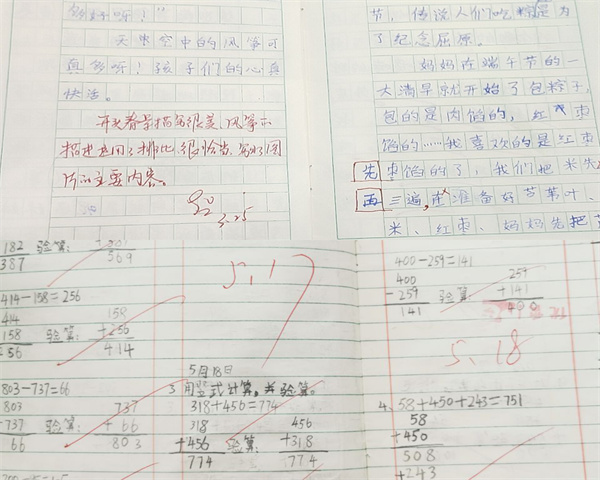 天空中的风筝可
真多呀！孩子们的心真
快活。
开头春景描写很美，风筝的
描述运用了排比，很恰当，写出了图
片的主要内容。
3.25
节，传说人们吃粽是为
了纪念屈原。
妈妈在端午节的一
大清早就开始了包粽子，
包的是肉馅的，红枣
馅的……我喜欢的是红枣
枣馅的了，我们把米先
先
再
三遍，准备好苇叶、
米、红枣、妈妈先把
182 验算：
387
569
414-158=256
414
158
158 验算：
+256
414
803-737=66
803
737
-737 验算：
+66
66
803
5.17
5月18日
3.用竖式计算，并验算。
318+456=774
318
456
+456 验算：
+318
774
774
400-259=141
400
259
-259 验算：
+141
141
400
5.18
4.58+450+243=751
58
+450
508
+243